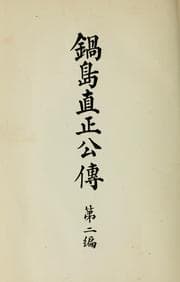 鍋島直正公傳
第二編